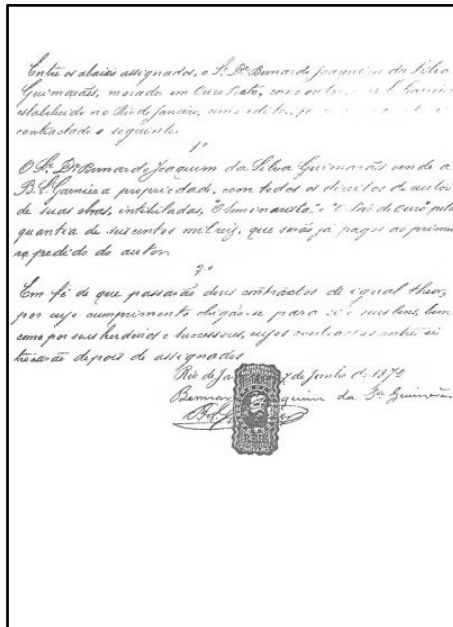 Entre os abaixo assignados, o Sr. Dr. Bernardo Joaquim da Silva
Guimarães, morador em Ouro Preto, como autor, B. L. Garnier
estabelecido no Rio de Janeiro, como editor,
contractado o seguinte:
1º
O Sr. Dr. Bernardo Joaquim da Silva Guimarães vende a
B. L. Garnier a propriedade, com todos os direitos de autor
de suas obras, intituladas, "O Seminarista" e "O Indio" pela
quantia de seis centos mil reis, que serão já pagos ao primei
ro pedido do autor.
2º
Em fé de que passarão dous contractos de igual theor,
por cujo cumprimento obrigão-se para si e seus bens, bem
como por seus herdeiros e successores, cujos contractos entre si
trocarão depois de assignados
Rio de Ja de Junho de 187
Bernar quim da Sª Guimarães